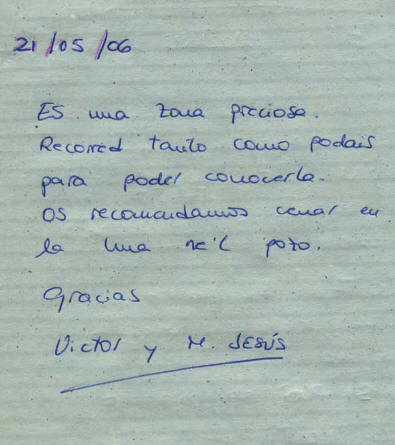 21/05/06
ES una zona preciosa.
Recorred tanto como podais
para poder conocerla.
OS recomendamos cenar en
la luna ne'l pozo.
Gracias
Victor y M. JESÚS